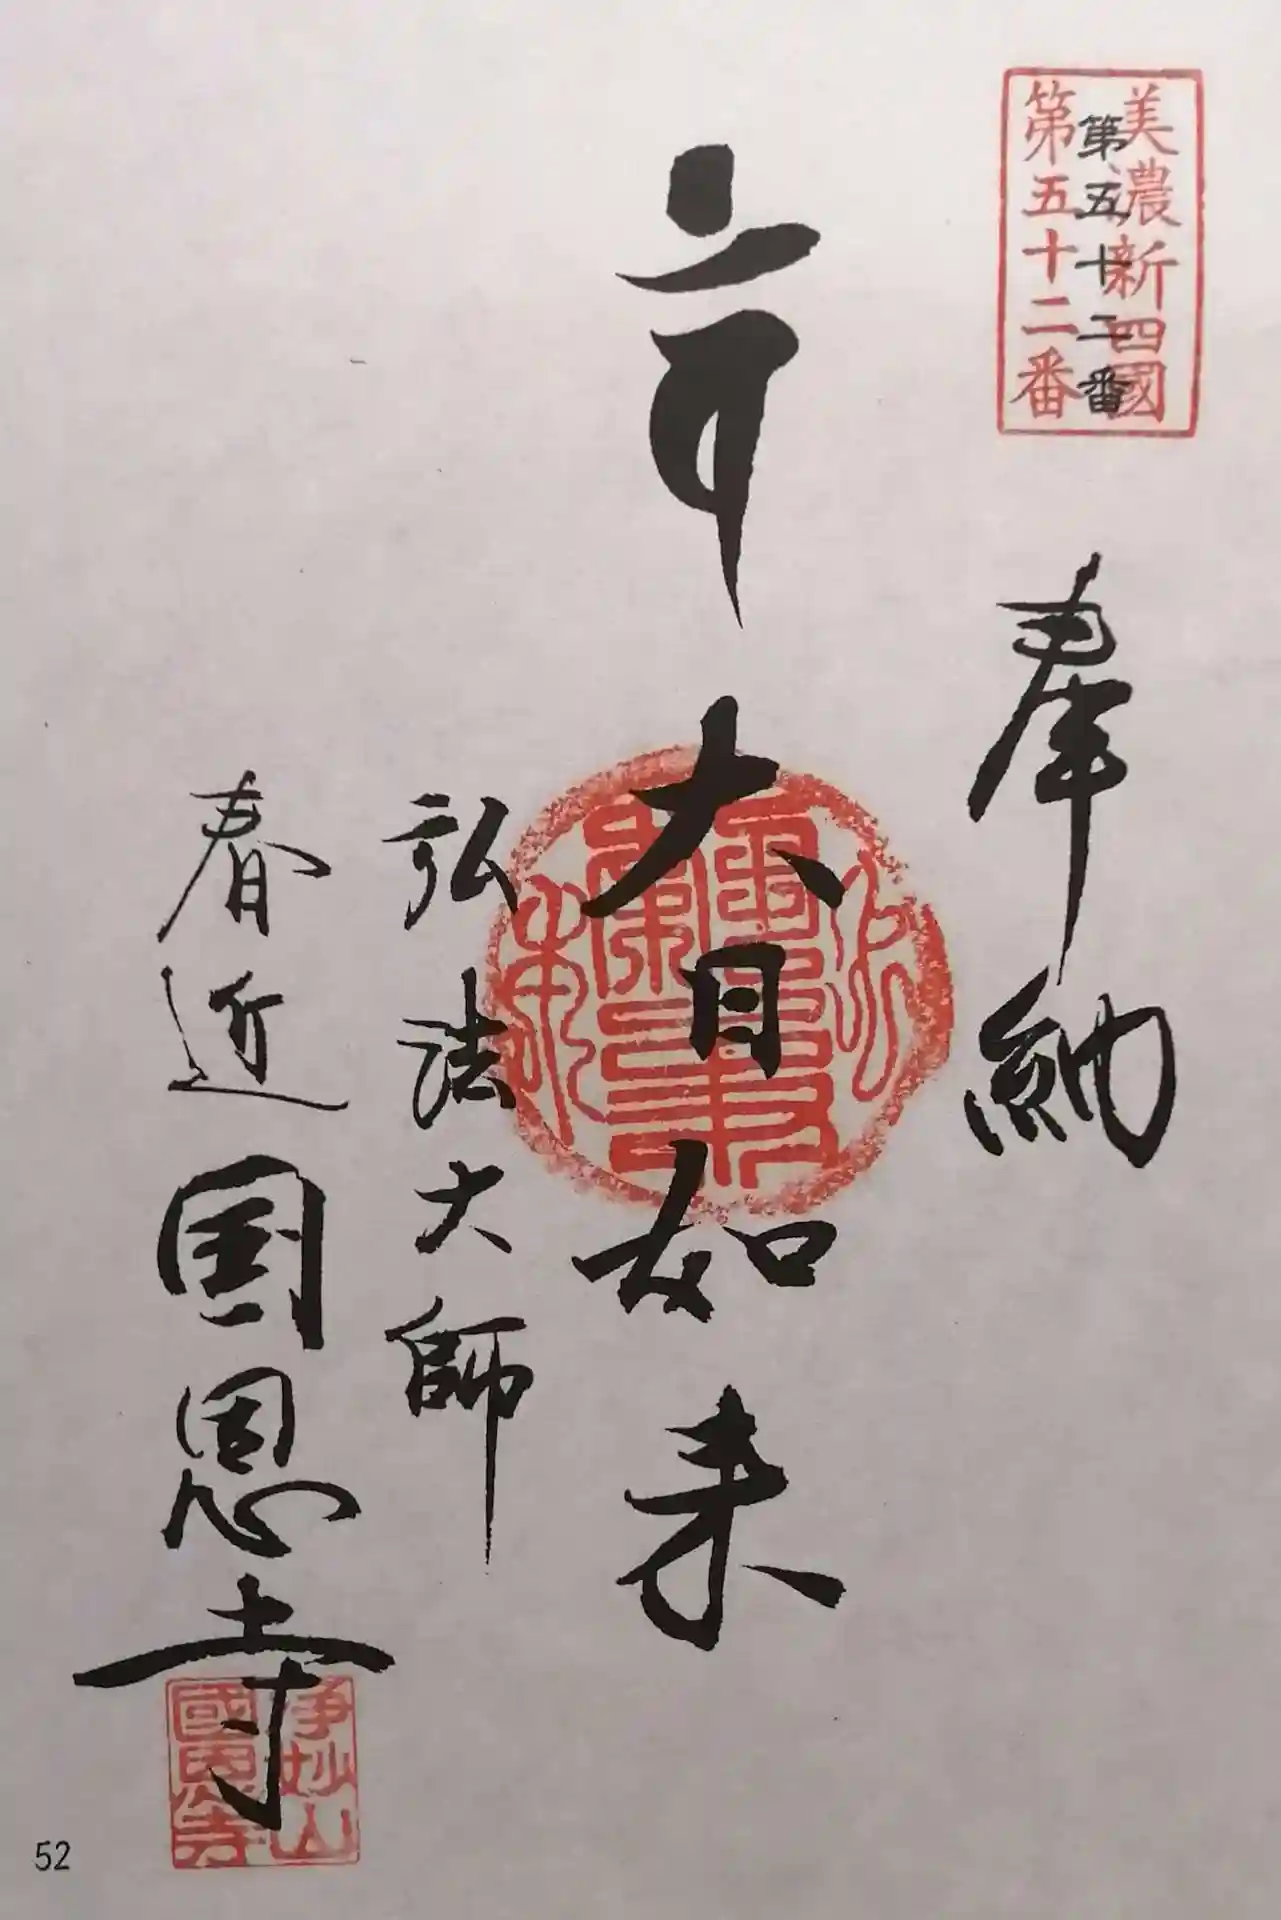 美濃新四國
第五十二番
第五十二番
奉納
大日如来
弘法大師
春近
国恩寺
浄妙山
國恩寺
52